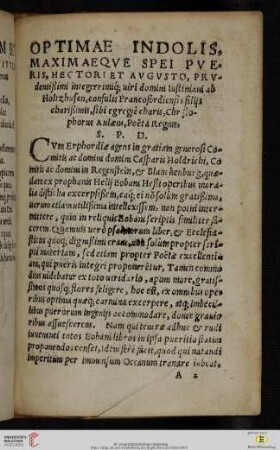 OPTIMAE INDOLIS,
MAXIMAEQVE SPEI PVE
RIS, HECTORI ET AVGVSTO, PRV
dentißimi integerrimiq́; uiri domini Iustiniani ab
Holtzhusen, consulis Francofordiensis filijs
charißimis, sibi egregiè charis, Christo
phorus Aulæus, Poëta Regius,
S. P. D.
CVm Erphordiæ agens in gratiam generosi Co
mitis ac domini domini Casparis Holdrichi, Co
mitis ac domini in Regenstein, & Blanckenburg, quæ
dam ex prophanis Helij Eobani Heßi operibus mora
lia disticha excerpsissem, eaq́; et nõ solùm gratißima,
uerum etiam utilißima intellexissem: non potui inter
mittere, quin in reliquis Eobani scriptis similiter fa
cerem. Quamuis uerò psalmorum liber, & Ecclesia-
stes quoq; dignißimi erant, nõ solùm propter scri-
pti maiestatem, sed etiam propter Poëtæ excellentia
m, qui pueris integri proponerẽtur, Tamen commo
dem uidebatur ex toto uiridario, apum more, gratis-
simos quosq; flores seligere, hoc est, ex omnibus ope
ribus optima quæq; carmina excerpere, atq; imbecil-
libus puerorum ingenijs accommodare, donec grauio
ribus assuescerent. Nam qui teneræ adhuc & rudi
iuuentuti totos Eobani libros in ipsa pueritia statim
proponendos censet, idem ferè facit, quod qui natandi
imperitum per immensum Oceanum tranare iubeat.
A 2